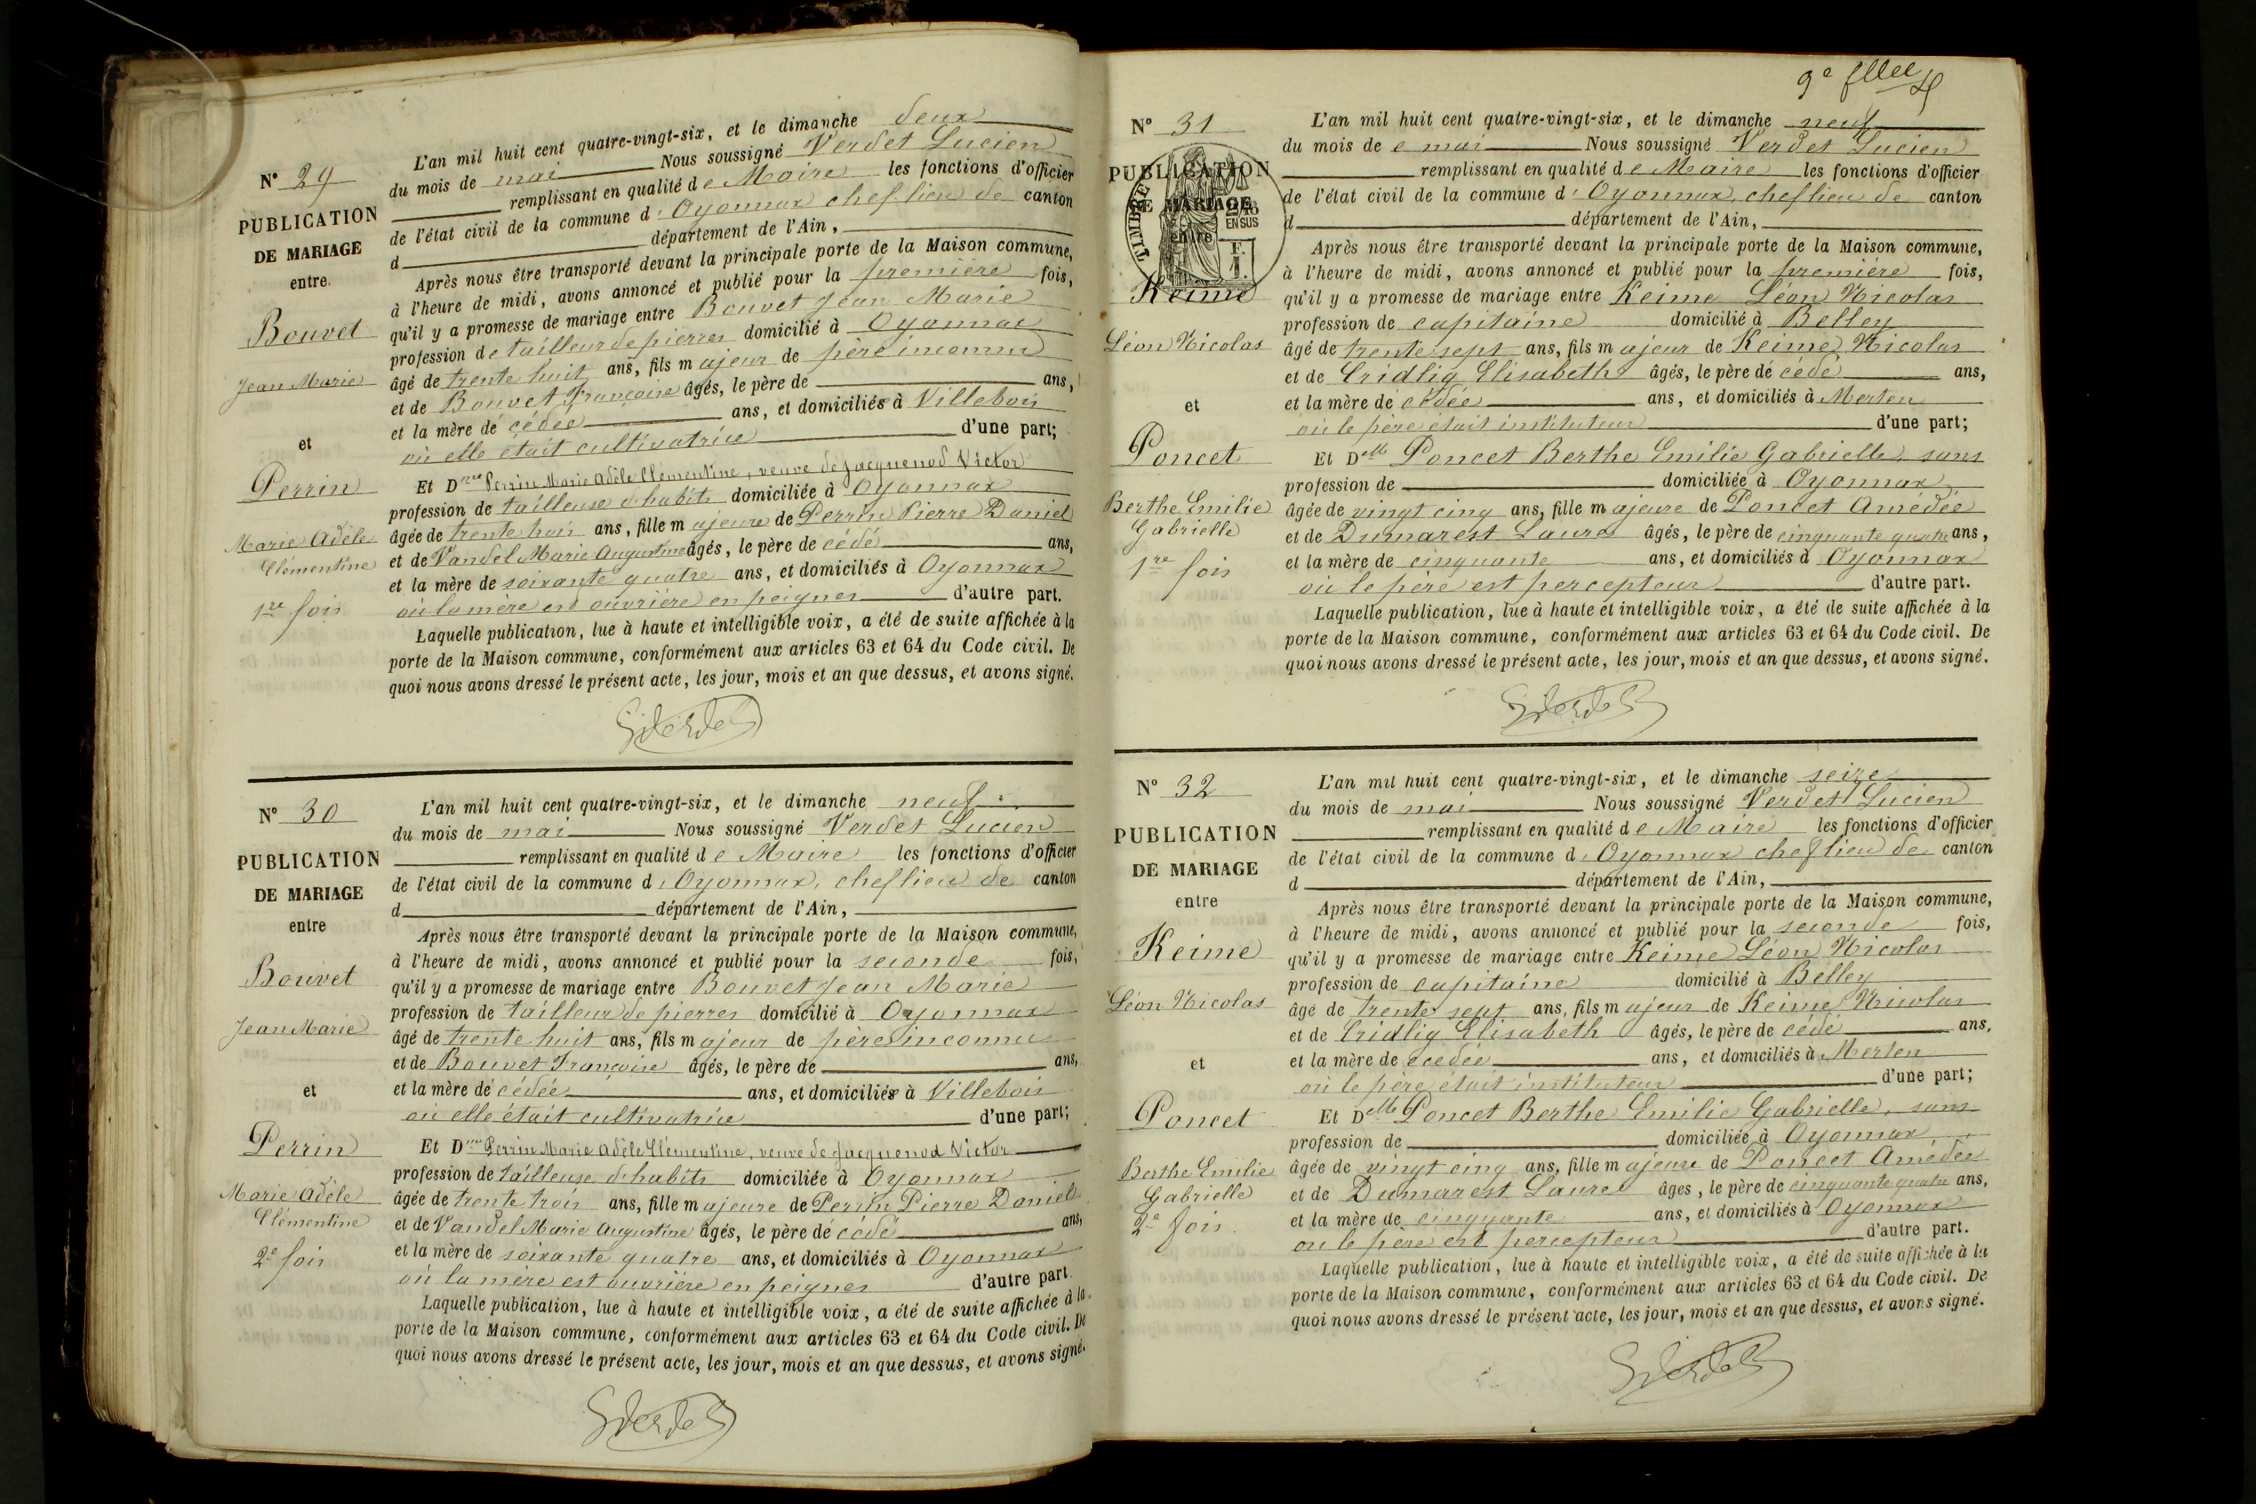 N° 29
PUBLICATION
DE MARIAGE
entre
Bouvet
Jean Marie
et
Perrin
Marie Adèle
Clémentine
1re fois
L'an mil huit cent quatre-vingt-six, et le dimanche deux
du mois de mai Nous soussigné Verdet Lucien
remplissant en qualité de Maire les fonctions d'officier
de l'état civil de la commune d'Oyonnax chef lieu de canton
d département de l'Ain,
Après nous être transporté devant la principale porte de la Maison commune,
à l'heure de midi, avons annoncé et publié pour la première fois,
qu'il y a promesse de mariage entre Bouvet Jean Marie
profession de tailleur de pierres domicilié à Oyonnax
âgé de trente huit ans, fils majeur de père inconnu
et de Bouvet Françoise âgés, le père de ans,
et la mère de cédée ans, et domiciliés à Villebois
où elle était cultivatrice d'une part;
Et Dme Perrin Marie Adèle Clémentine, veuve de Jacquenod Victor
profession de tailleuse d'habits domiciliée à Oyonnax
âgée de trente trois ans, fille majeure de Perrin Pierre Daniel
et de Vandel Marie Augustine âgés, le père de cédé ans,
et la mère de soixante quatre ans, et domiciliés à Oyonnax
où la mère est ouvrière en peignes d'autre part.
Laquelle publication, lue à haute et intelligible voix, a été de suite affichée à la
porte de la Maison commune, conformément aux articles 63 et 64 du Code civil. De
quoi nous avons dressé le présent acte, les jour, mois et an que dessus, et avons signé.
N° 30
PUBLICATION
DE MARIAGE
entre
Bouvet
Jean Marie
et
Perrin
Marie Adèle
Clémentine
2e fois
L'an mil huit cent quatre-vingt-six, et le dimanche neuf
du mois de mai Nous soussigné Verdet Lucien
remplissant en qualité de Maire les fonctions d'officier
de l'état civil de la commune d'Oyonnax, chef lieu de canton
d département de l'Ain,
Après nous être transporté devant la principale porte de la Maison commune,
à l'heure de midi, avons annoncé et publié pour la seconde fois,
qu'il y a promesse de mariage entre Bouvet Jean Marie
profession de tailleur de pierres domicilié à Oyonnax
âgé de trente huit ans, fils majeur de père inconnu
et de Bouvet Françoise âgés, le père de ans,
et la mère de cédée ans, et domiciliés à Villebois
où elle était cultivatrice d'une part;
Et Dme Perrin Marie Adèle Clémentine, veuve de Jacquenod Victor
profession de tailleuse d'habits domiciliée à Oyonnax
âgée de trente trois ans, fille majeure de Perrin Pierre Daniel
et de Vandel Marie Augustine âgés, le père de cédé ans,
et la mère de soixante quatre ans, et domiciliés à Oyonnax
où la mère est ouvrière en peignes d'autre part.
Laquelle publication, lue à haute et intelligible voix, a été de suite affichée à la
porte de la Maison commune, conformément aux articles 63 et 64 du Code civil. De
quoi nous avons dressé le présent acte, les jour, mois et an que dessus, et avons signé.
9e
N° 31
PUBLICATION
DE MARIAGE
entre
TIMBRE
2/10
EN SUS
F.
1.
Keime
Léon Nicolas
et
Poncet
Berthe Emilie
Gabrielle
1re fois
L'an mil huit cent quatre-vingt-six, et le dimanche neuf
du mois de mai Nous soussigné Verdet Lucien
remplissant en qualité de Maire les fonctions d'officier
de l'état civil de la commune d'Oyonnax, chef lieu de canton
d département de l'Ain,
Après nous être transporté devant la principale porte de la Maison commune,
à l'heure de midi, avons annoncé et publié pour la première fois,
qu'il y a promesse de mariage entre Keime Léon Nicolas
profession de capitaine domicilié à Belley
âgé de trente sept ans, fils majeur de Keime Nicolas
et de Cridlig Elisabeth âgés, le père de cédé ans,
et la mère de cédée ans, et domiciliés à Merten
où le père était instituteur d'une part;
Et Delle Poncet Berthe Emilie Gabrielle, sans
profession de domiciliée à Oyonnax
âgée de vingt cinq ans, fille majeure de Poncet Amédée
et de Dumarest Laure âgés, le père de cinquante quatre ans,
et la mère de cinquante ans, et domiciliés à Oyonnax
où le père est percepteur d'autre part.
Laquelle publication, lue à haute et intelligible voix, a été de suite affichée à la
porte de la Maison commune, conformément aux articles 63 et 64 du Code civil. De
quoi nous avons dressé le présent acte, les jour, mois et an que dessus, et avons signé.
N° 32
PUBLICATION
DE MARIAGE
entre
Keime
Léon Nicolas
et
Poncet
Berthe Emilie
Gabrielle
2e fois
L'an mil huit cent quatre-vingt-six, et le dimanche seize
du mois de mai Nous soussigné Verdet Lucien
remplissant en qualité de Maire les fonctions d'officier
de l'état civil de la commune d'Oyonnax chef lieu de canton
d département de l'Ain,
Après nous être transporté devant la principale porte de la Maison commune,
à l'heure de midi, avons annoncé et publié pour la seconde fois,
qu'il y a promesse de mariage entre Keime Léon Nicolas
profession de capitaine domicilié à Belley
âgé de trente sept ans, fils majeur de Keime Nicolas
et de Cridlig Elisabeth âgés, le père de cédé ans,
et la mère de ecedée ans, et domiciliés à Merten
où le père était instituteur d'une part;
Et Delle Poncet Berthe Emilie Gabrielle, sans
profession de domiciliée à Oyonnax
âgée de vingt cinq ans, fille majeure de Poncet Amédée
et de Dumarest Laure âges, le père de cinquante quatre ans,
et la mère de cinquante ans, et domiciliés à Oyonnax
ou le père est percepteur d'autre part.
Laquelle publication, lue à haute et intelligible voix, a été de suite affichée à la
porte de la Maison commune, conformément aux articles 63 et 64 du Code civil. De
quoi nous avons dressé le présent acte, les jour, mois et an que dessus, et avons signé.